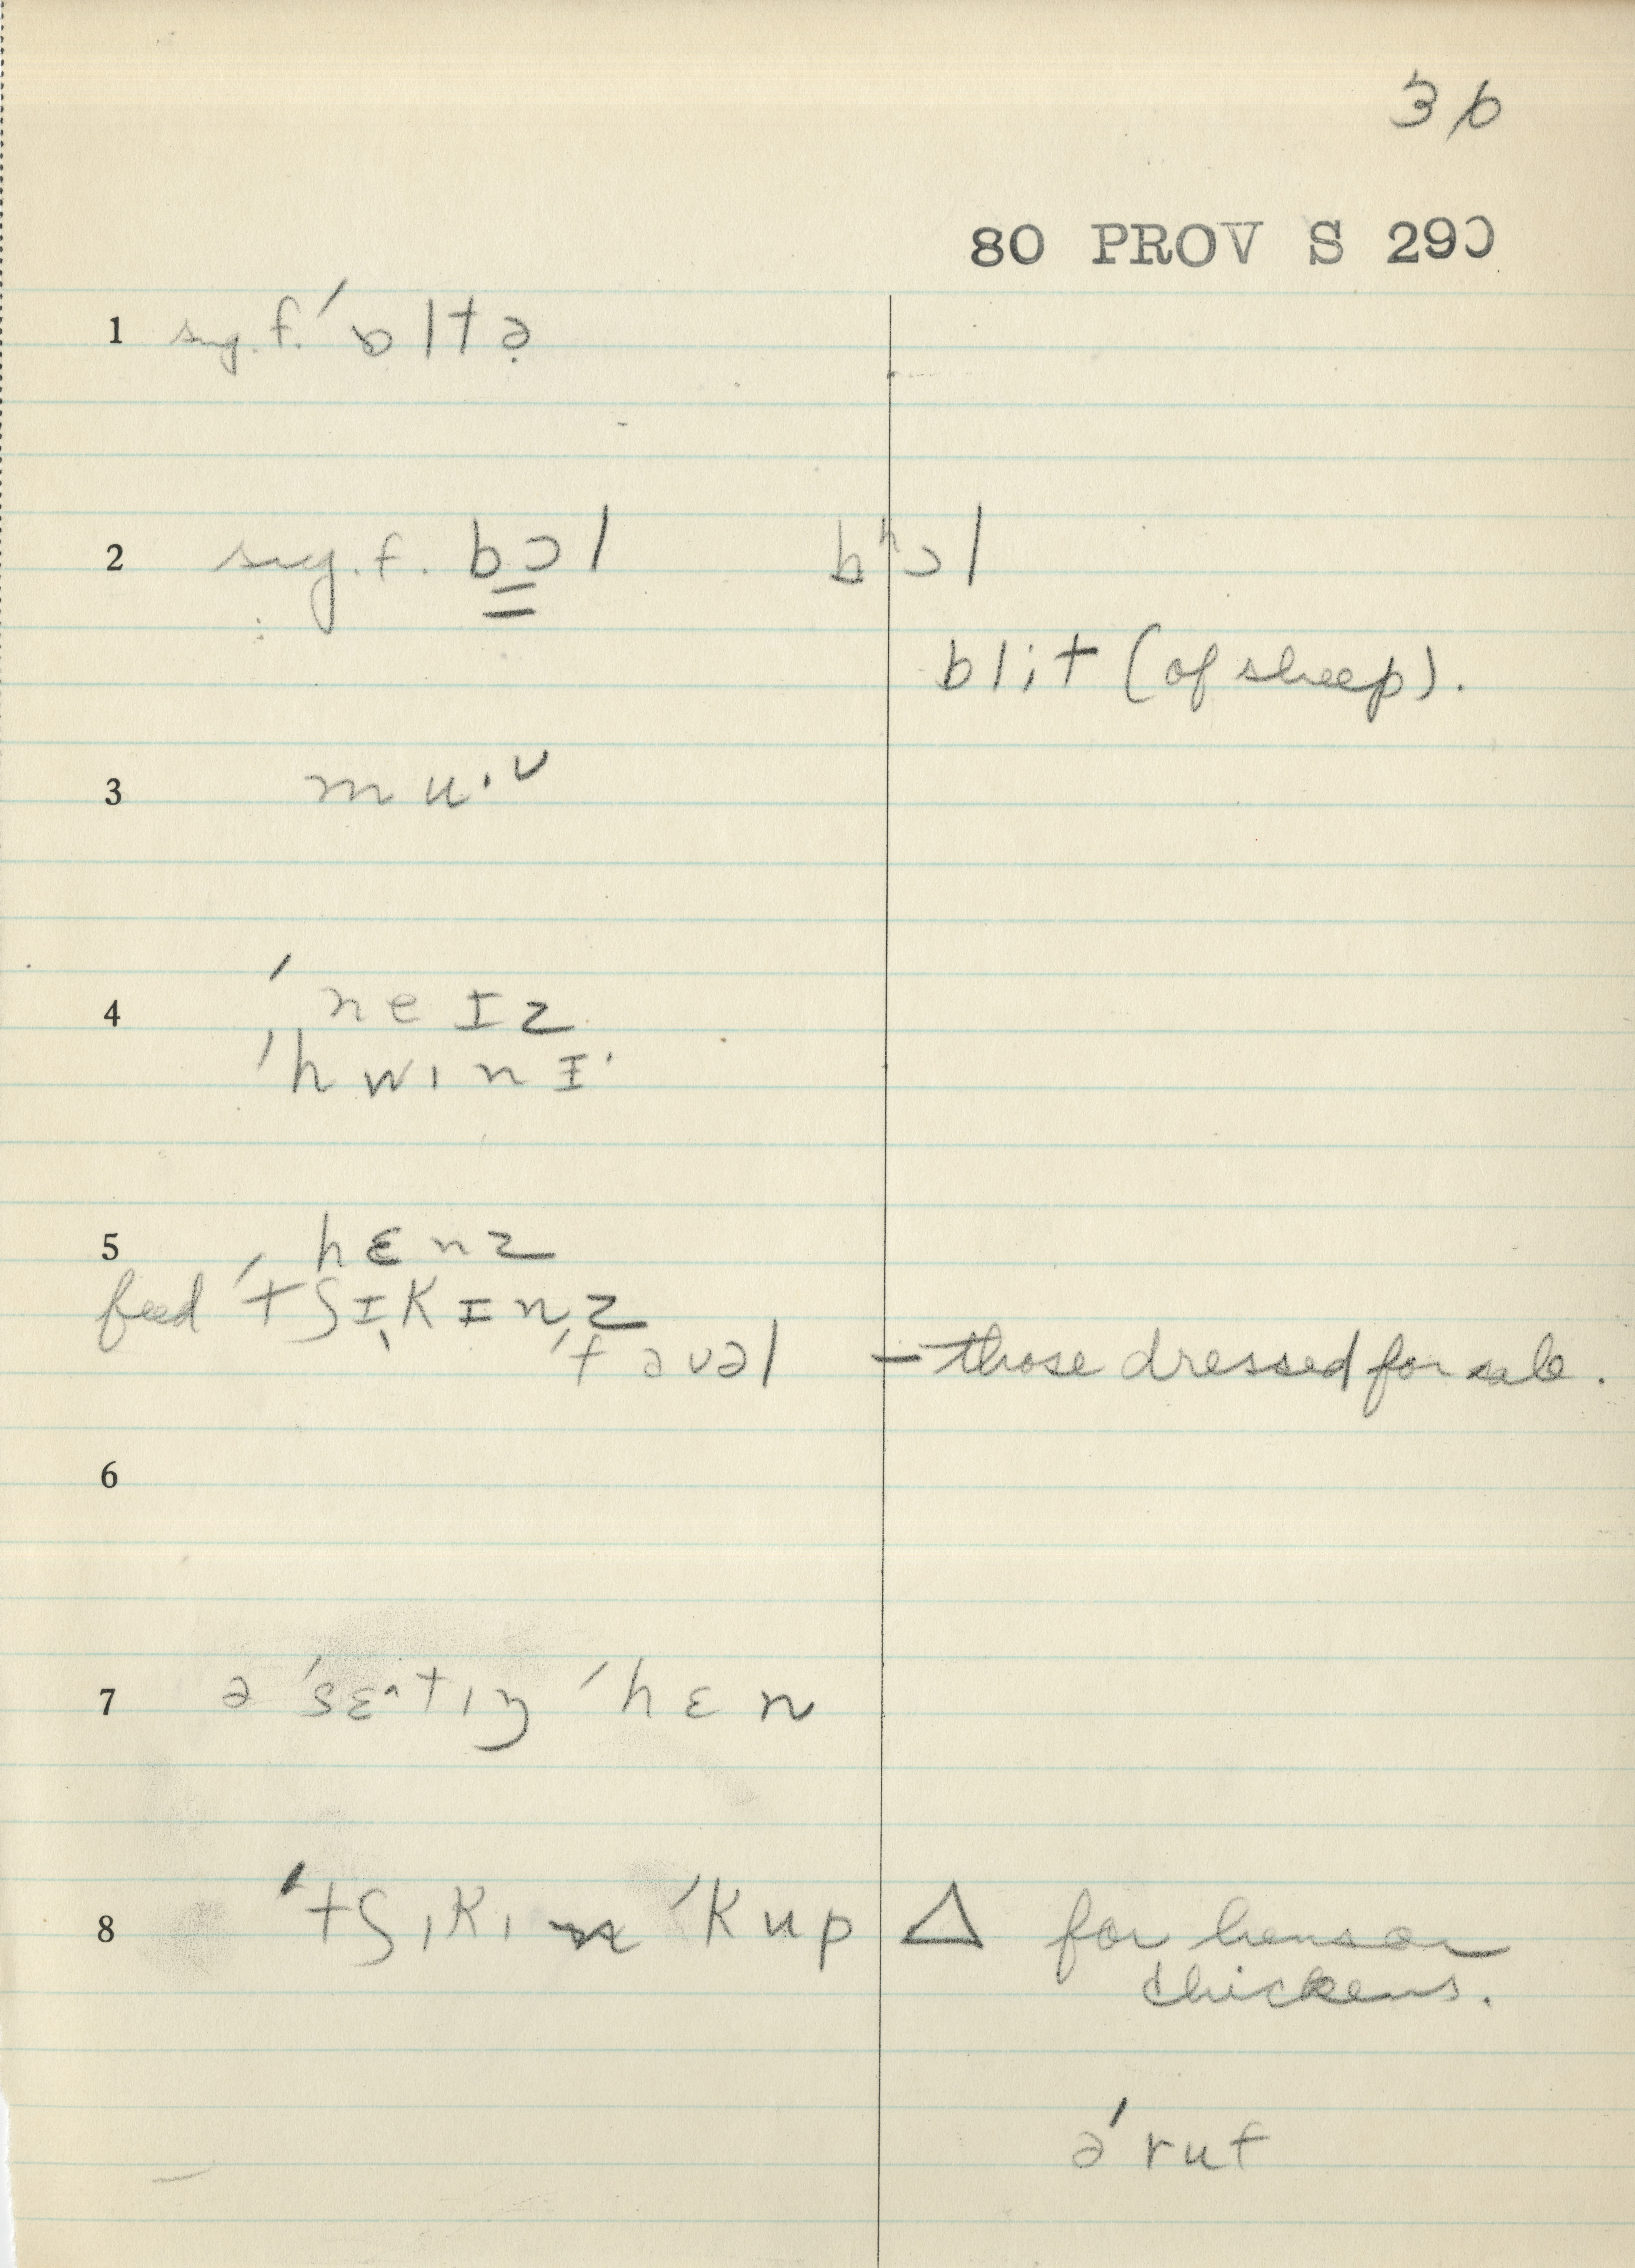 36
80 PROV S 290
1 sug. f. ˈɒltə̣
2 sug. f. bɔl bʰɔl
blit (of sheep).
3 muᐧᵛ
4 ˈneɪz
ˈhwɪnɪ
5 hɛnz
feed ˈtʃɪkɪnz
ˈfaʊəl – those dressed for sale.
6
7 ə ˈsɛˆtɪŋ ˈhɛn
8 ˈtʃɪkɪn ˈkup Δ for hens or
chickens.
ə ˈruf